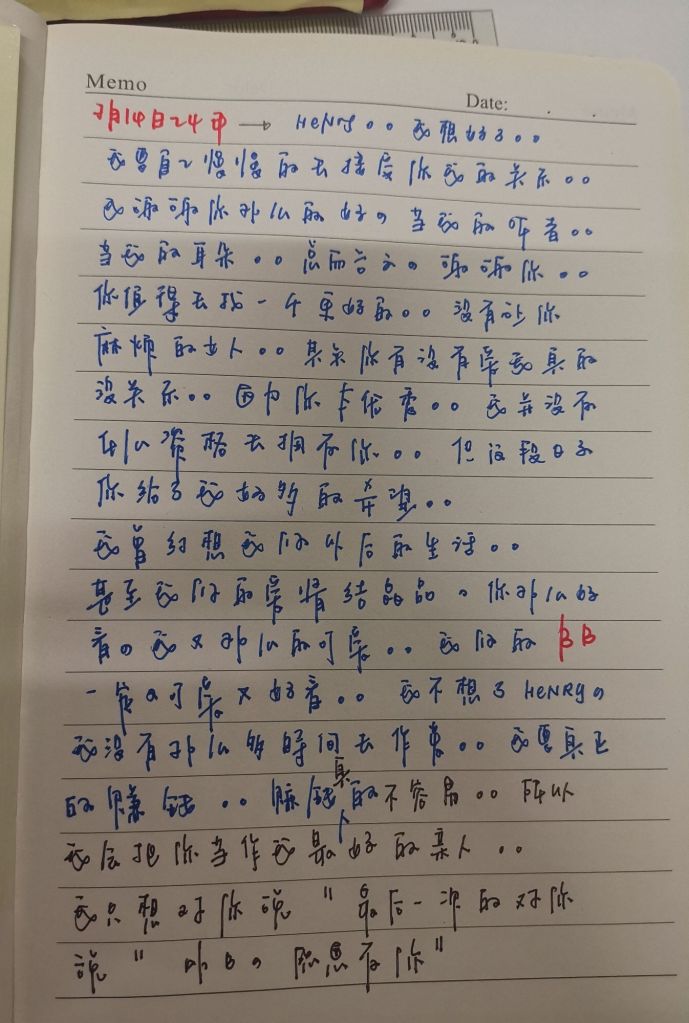 Memo
Date:
2月14日24 → HENRY。。我想好了。。
我要自己慢慢的去接受你我的关系。。
我谢谢你那么的好。当我的听者。。
当我的耳朵。。总而言之。谢谢你。。
你值得去找一个更好的。。没有让你
麻烦的女人。。其实你有没有爱我真的
没关系。。因为你太优秀。。我并没有
什么资格去拥有你。。但这段日子
你给了我好多的希望。。
我曾幻想我们以后的生活。。
甚至我们的爱情结晶品。你那么好
看。我又那么的可爱。。我们的BB
一定很可爱又好看。。我不想了HENRY。
我没有那么多時间去作夢。。我要真正
的赚钱。。赚钱真的不容易。。所以
我会把你当作我最好的
我只想对你說"最后一次的对你
說"